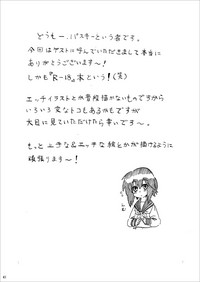 どうもー、バスキーという者です。
今回はゲストに呼んでいただきまして本当に
ありがとうございます〜！
しかも『R-18』本という！(笑)
エッチイラストとか普段描かないものですから
いろいろ変なトコもあるかもですが
大目に見ていただけたら幸いです〜。
もっと上手な&エッチな絵とかが描けるように
頑張ります〜！